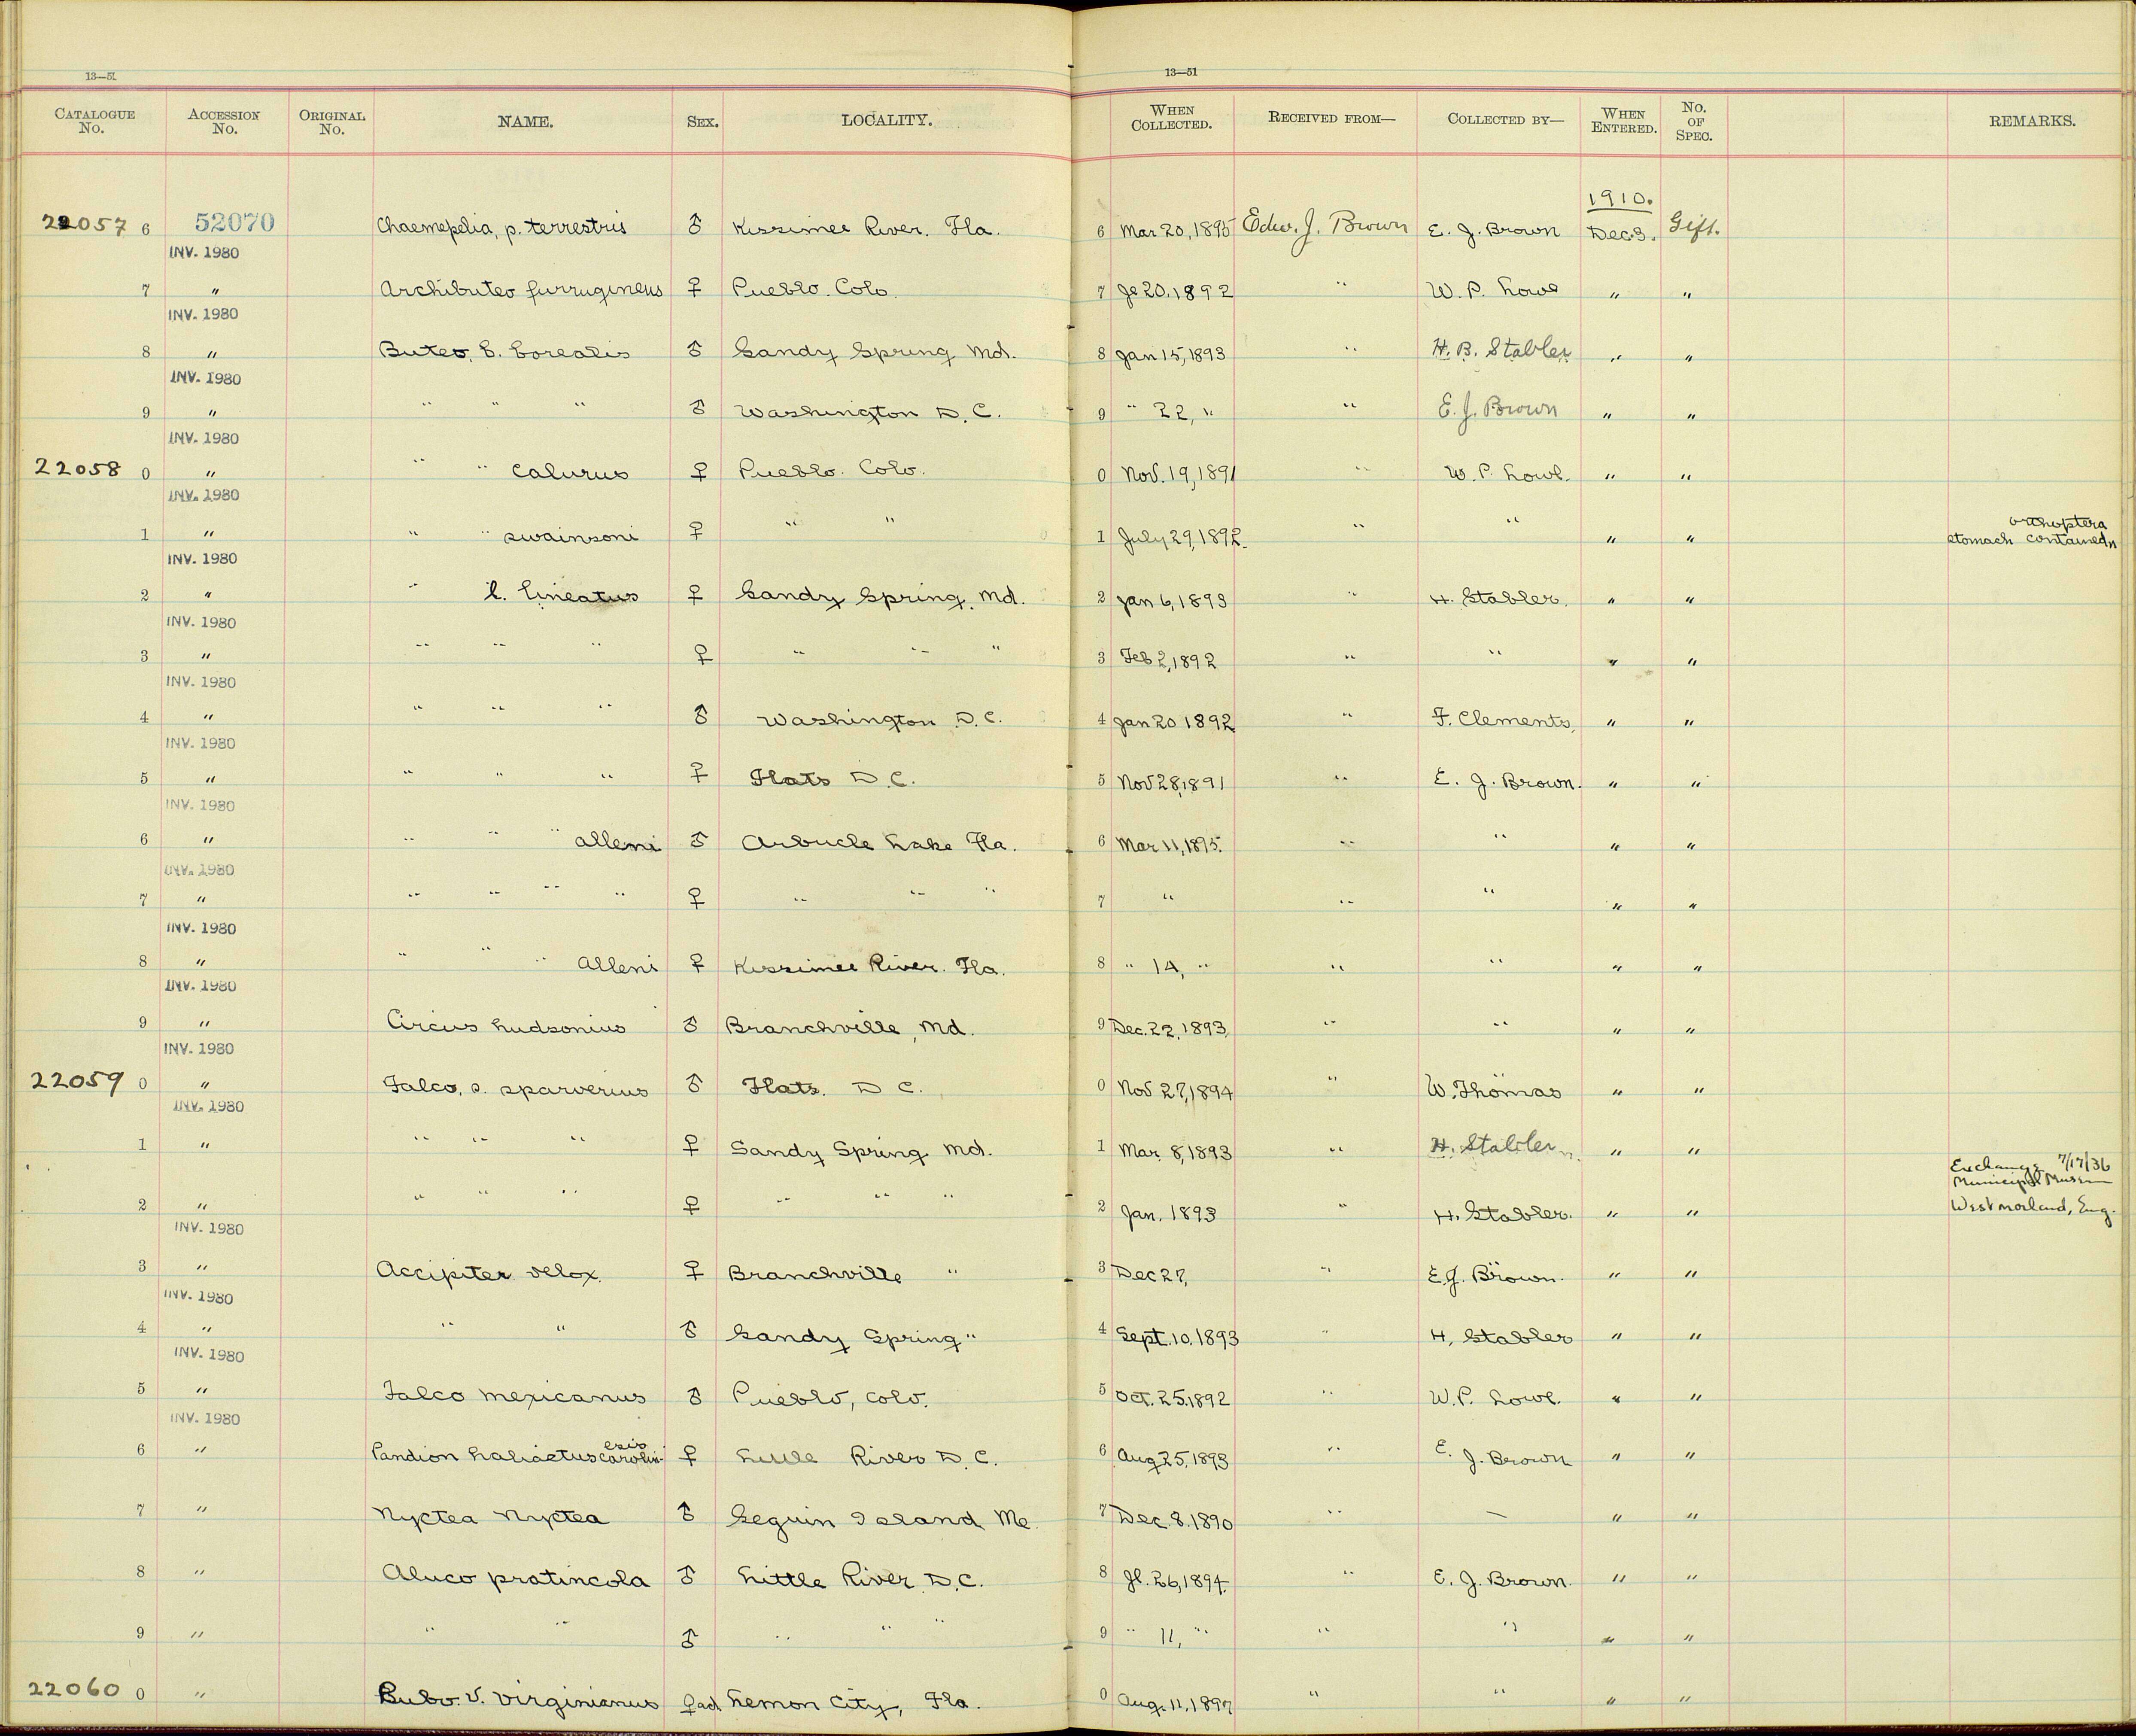 13—51
13—51
CATALOGUE No. ACCESSION No. ORIGINAL No. NAME. SEX. LOCALITY. WHEN COLLECTED. RECEIVED FROM— COLLECTED BY— WHEN ENTERED. No. OF SPEC. REMARKS.
1910.
22057 6 52070 Chaemepelia, p. terrestris ♂ Kissimee River. Fla. 6 Mar 20, 1895 Edw. J. Brown E. J. Brown Dec. 3. Gift.
INV. 1980
7 " Archibuteo furrugineus ♀ Pueblo. Colo. 7 Je 20. 1892 " W. P. Lowe " "
INV. 1980
8 " Buteo, b. borealis ♂ Sandy Spring Md. 8 Jan 15, 1893 " H. B. Stabler " "
INV. 1980
9 " " " " ♂ Washington D. C. 9 " 22, " " E. J. Brown " "
INV. 1980
22058 0 " " " calurus ♀ Pueblo. Colo. 0 Nov. 19, 1891 " W. P. Lowe. " "
INV. 1980
orthoptera
1 " " " swainsoni ♀ " " 1 July 29, 1892. " " " " stomach contained
INV. 1980
2 " " l. lineatus ♀ Sandy Spring. Md. 2 Jan 6, 1893 " H. Stabler. " "
INV. 1980
3 " " " " ♀ " " " 3 Feb 2, 1892 " " " "
INV. 1980
4 " " " " ♂ Washington D. C. 4 Jan 20 1892 " F. Clements, " "
INV. 1980
5 " " " " ♀ Flats D. C. 5 Nov 28, 1891 " E. J. Brown. " "
INV. 1980
6 " " " " alleni ♂ Arbucle Lake Fla. 6 Mar 11, 1895. " " " "
INV. 1980
7 " " " " " ♀ " " " 7 " " " " "
INV. 1980
8 " " " " alleni ♀ Kissimee River. Fla. 8 " 14, " " " " "
INV. 1980
9 " Circus hudsonius ♂ Branchville, Md. 9 Dec. 22, 1893 " " " "
INV. 1980
22059 0 " Falco, s. sparverius ♂ Flats. D C. 0 Nov 27, 1894 " W. Thomas " "
INV. 1980
1 " " " " ♀ Sandy Spring Md. 1 Mar 8, 1893 " H. Stabler " "
Exchange 7/17/36
Municipal Museum
2 " " " " ♀ " " " 2 Jan. 1893 " H. Stabler. " " Westmorland, Eng.
INV. 1980
3 " Accipiter velox. ♀ Branchville " 3 Dec 27, " E. J. Brown. " "
INV. 1980
4 " " " ♂ Sandy Spring " 4 Sept. 10. 1893 " H. Stabler " "
INV. 1980
5 " Falco mexicanus ♂ Pueblo, Colo. 5 Oct. 25. 1892 " W. P. Lowe. " "
INV. 1980
ensis
6 " Pandion haliaetus carolin- ♀ Little River D. C. 6 Aug 25, 1893 " E. J. Brown " "
7 " Nyctea Nyctea ♂ Seguin Island Me. 7 Dec. 8. 1890 " — " "
8 " Aluco pratincola ♂ Little River D. C. 8 Jl. 26, 1894. " E. J. Brown. " "
9 " " " ♂ " " " 9 " 11, " " " " "
22060 0 " Bubo. v. virginianus ♀ad Lemon City, Fla. 0 Aug. 11, 1897 " " " "